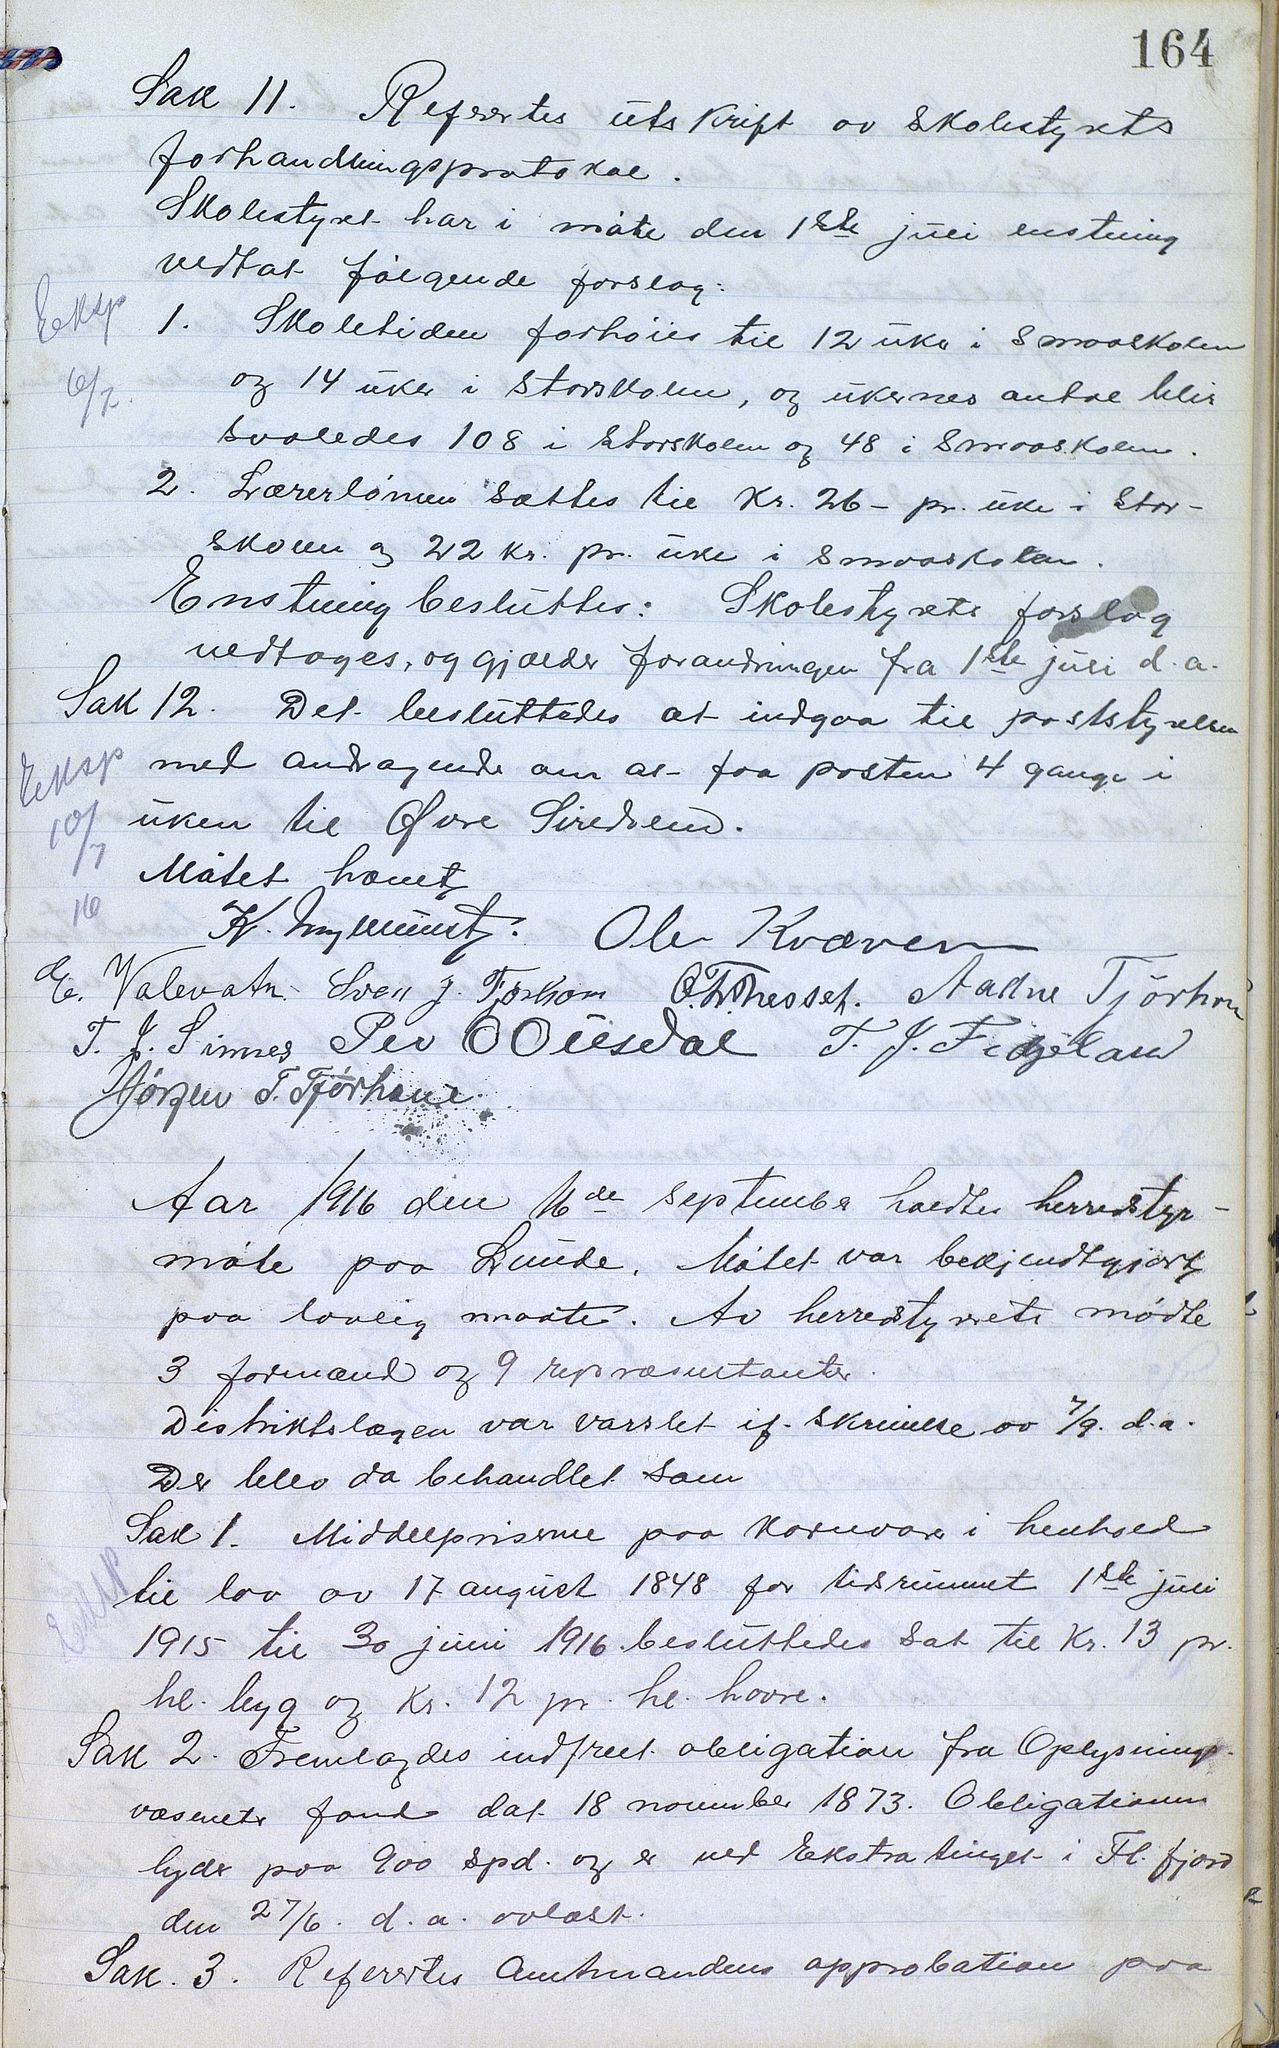 164
Sak 11. Refertes utskrift av skolestyrets
forhandlingsprotokol.
Skolestyret har i møte den 1ste juli enstemig
vedtat følgende forslag:
Eksp
6/7.
1. Skoletiden forhøies til 12 uker i smaaskolen
og 14 uker i storskolen, og ukernes antal blir
saaledes 108 i storskolen og 48 i smaaskolen.
2. Lærerlønnen sættes til kr. 26 - pr. uke i stor-
skolen og 22 kr. pr. uke i smaaskolen.
Enstemig besluttes: Skolestyrets forslag
vedtages, og gjælder forandringen fra 1ste juli d.a.
Sak 12. Det besluttedes at indgaa til poststyrelsen
Eksp
10/7
16
med andragende om at faa posten 4 gange i
uken til Øvre Siredalen.
Møtet hævet
Ole Kvæven
E. Valevatn. Sven J. Tjørhom Aadne Tjörhom
T. J. Sinnes Per O Ousdal T. J. Fidjeland
Jørgen T. Tjørhom
Aar 1916 den 16de september holdtes herredsty-
møte paa Lunde. Møtet var bekjendtgjort
paa lovlig maate. Av herredstyrets mødte
3 formænd og 9 repræsentanter.
Distriktslægen var varslet if. skrivelse av 7/9. d.a.
Der blev da behandlet som
Eksp
Sak 1. Middelpriserne paa kornvarer i henhold
til lov av 17 august 1848 for tidsrummet 1ste juli
1915 til 30 juni 1916 besluttedes sat til kr. 13 pr.
hl. byg og kr. 12 pr. hl. havre.
Sak 2. Fremlagdes indfriet obligation fra Oplysnings-
væsenets fond dat 18 november 1873. Obligationen
lyder paa 900 spd. og er ved Ekstratinget i Fl. fjord
den 27/6. d. a. avlæst.
Sak. 3. Refertes Amtmandens approbation paa